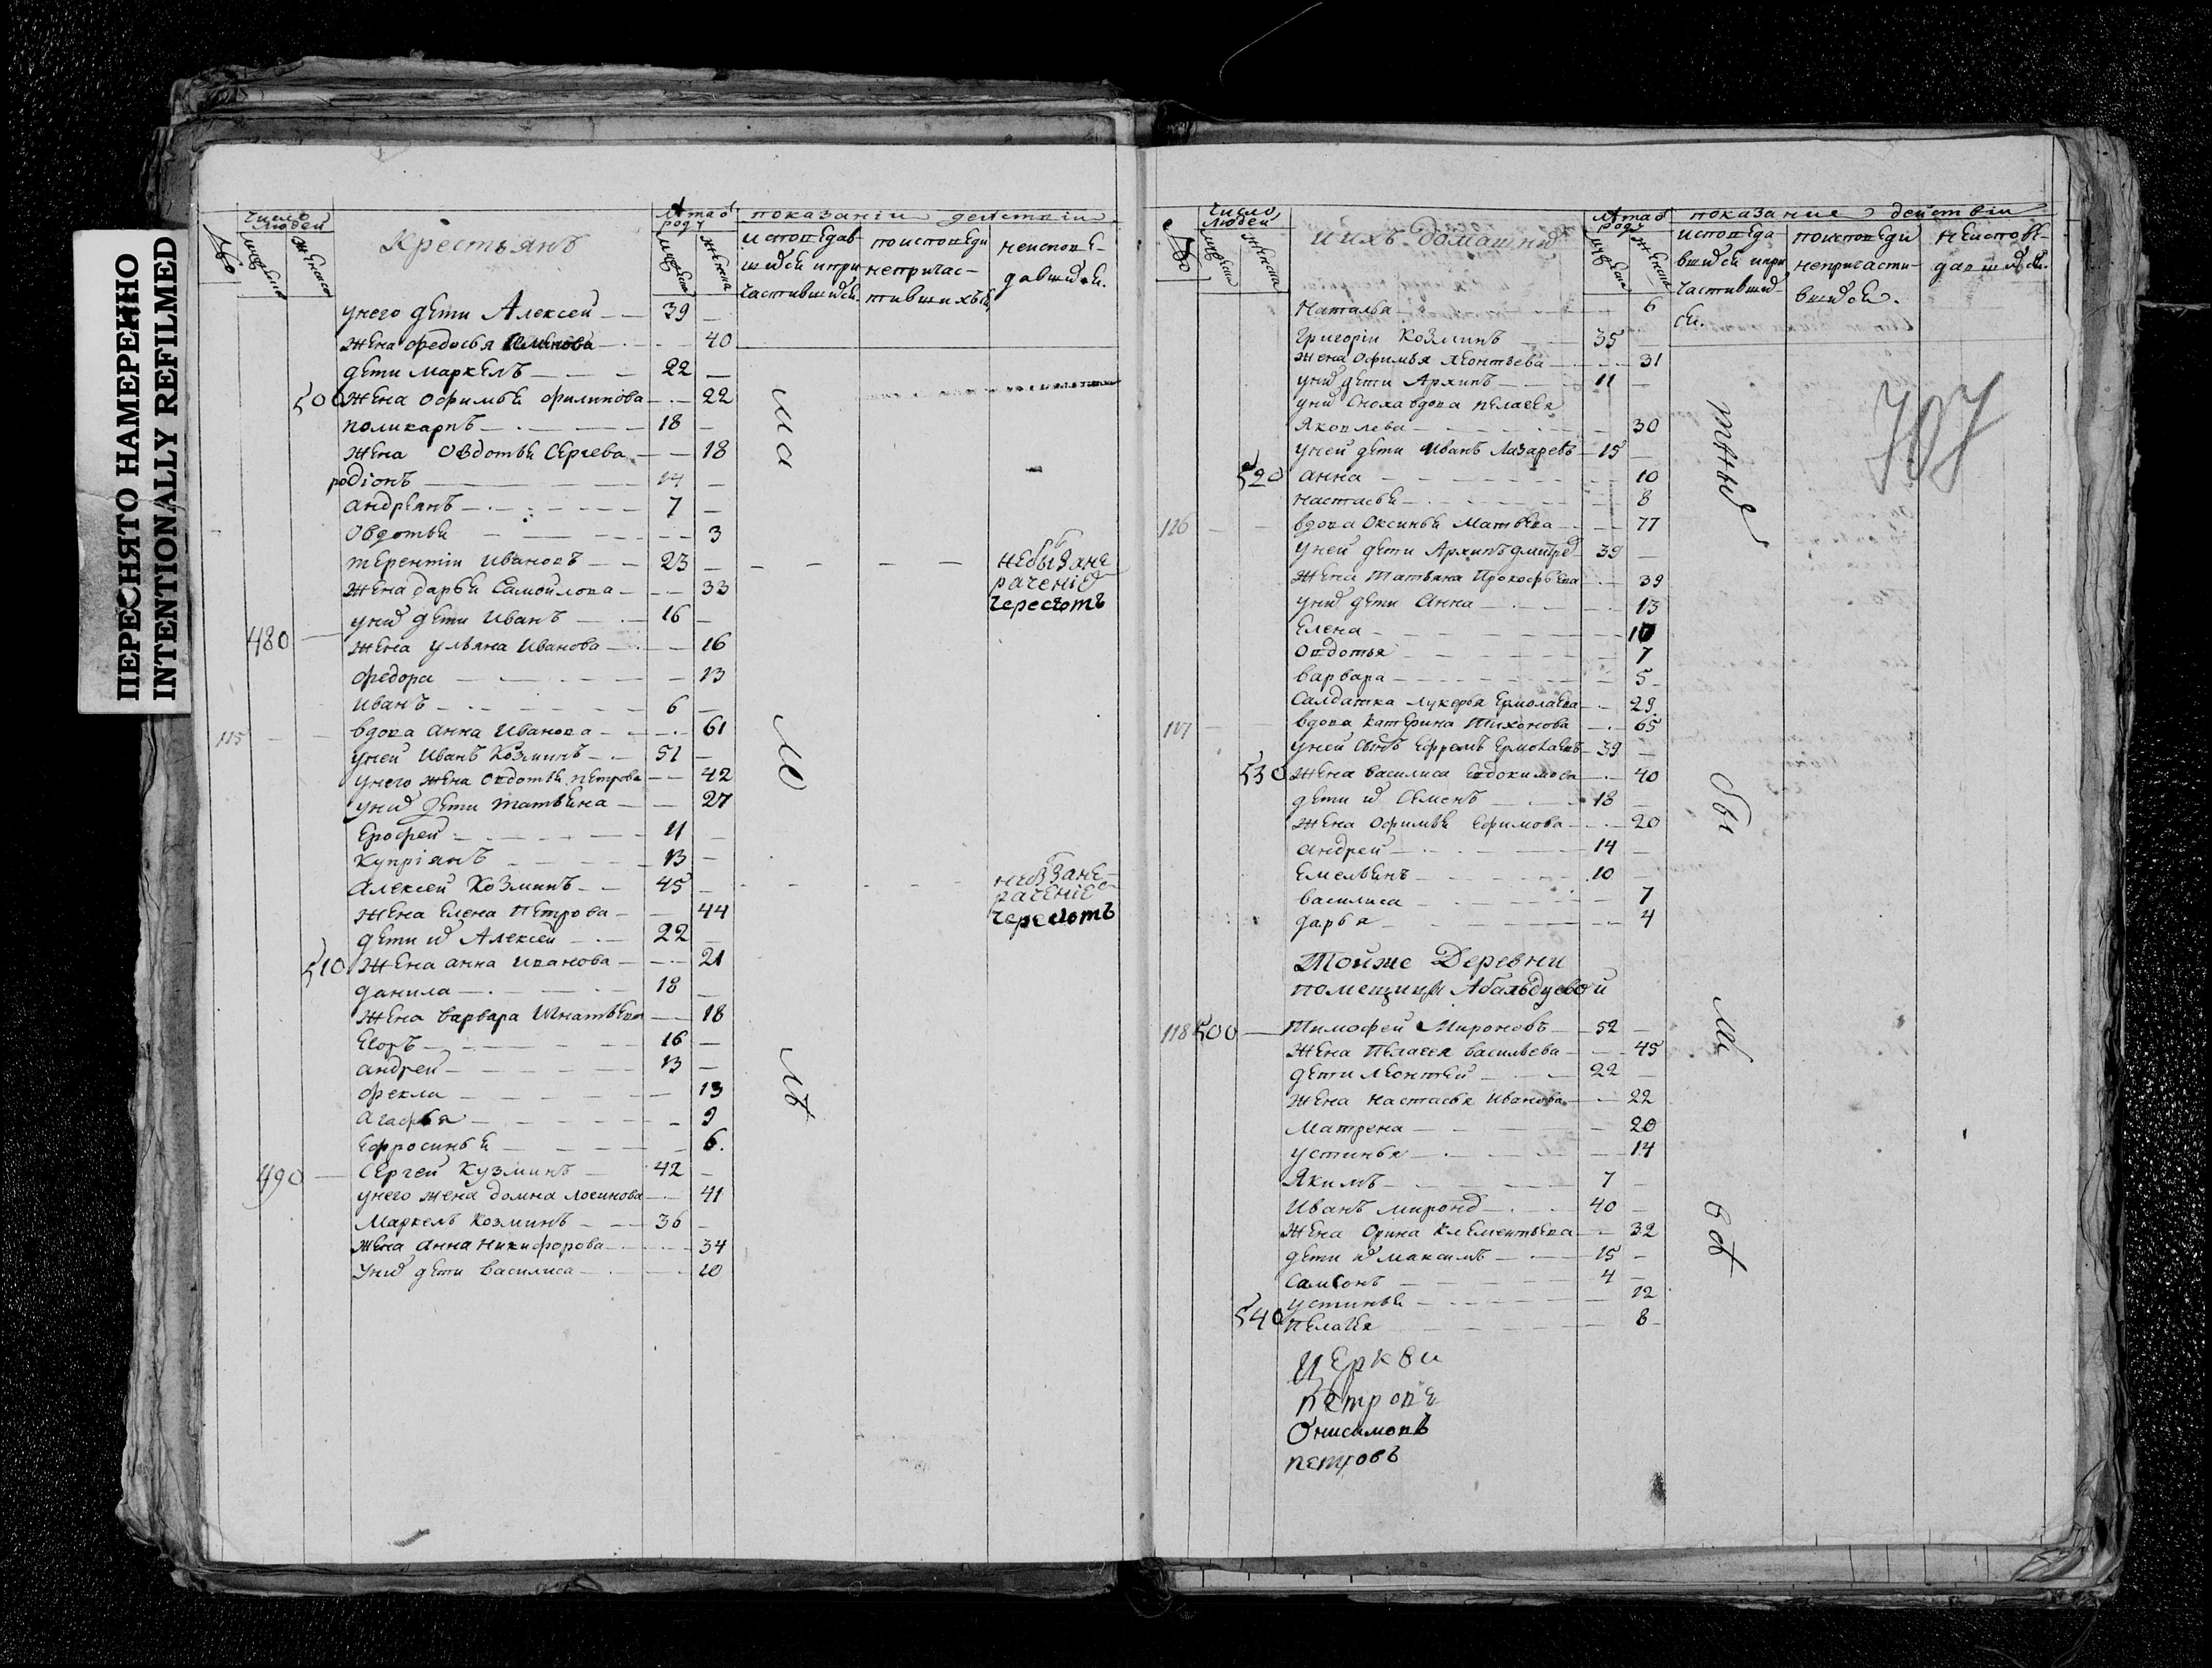 ПЕРЕСНЯТО НАМЕРЕННО
INTENTIONALLY REFILMED
число людей
Крестьянъ
лѣта отъ роду
показании действии
№
мужеска
женска
мужеска
женска
исповедав- шихся и при- частившихся.
по исповеди непричас- тившихъся
неисповѣ- давшихся.
унего дети Алексей 39
жена Федосья 40
дети маркелъ 22
500 жена Офимья филипова 22
поликарпъ 18
жена Овдотья Сергева 18
родіонъ 14
андреянъ 7
Овдотья 3
терентіи Ивановъ 23
жена дарья Самойлова 33
уних дети Иванъ 16
480 жена ульяна Иванова 16
федора 13
иванъ 6
115 вдова анна Иванова 61
уней Иванъ Козминъ 51
унего жена Овдотья петрова 42
уних дети татьяна 27
Ерофей 11
Купріянъ 13
алексей Козминъ 45
жена Елена Петрова 44
дети их Алексей 22
510 жена анна иванова 21
данила 18
жена варвара Игнатьева 18
Егоръ 16
андрей 13
фекла 13
агафья 9
Ефросинья 6.
490 Сергей Кузминъ 42
унего жена домна логинова 41
Маркелъ Козминъ 36
жена анна никифорова 34
уних дети василиса 10
число людей
и ихъ домашних
лѣта отъ роду
показание действии
№
мужеска
женска
мужеска
женска
исповеда вшихся и при частивших- ся.
по исповеди непричасти- вшихся.
неисповѣ- давшихся.
707
Наталья 6
Григоріи Козминъ 35
жена Офимья леонтьева 31
уних дети Архипъ 11
уних сноха вдова пелагея
Яковлева 30
уней дети иванъ Лазаревъ 15
520 анна 10
настасья 8
116 вдова Оксинья Матвѣева 77
уней дети Архипъ дмитрев 39
жена татьяна Прокофьева 39
уних дети анна 13
Елена 10
Овдотья 7
варвара 5
Салдатка лукерья Ермолаева 29
117 вдова катерина тихонова 65
уней сынъ Ефремъ Ермолаевъ 39
530 жена василиса Евдокимова 40
дети их семенъ 18
жена Офимья Ефимова 20
андрей 14
Емельянъ 10
василиса 7
дарья 4
Тойже Деревни
помещицы Абальдуевой
118 500 Тимофей Мироновъ 52
жена Пелагея васильева 45
дети леонтей 22
жена настасья иванова 22
матрена 20
устинья 14
Якимъ 7
Иванъ миронов 40
жена Орина клементьева 32
дети их максимъ 15
самсонъ 4
устинья 12
540 пелагея 8
церкви
петропа
Онисимовъ
петровъ